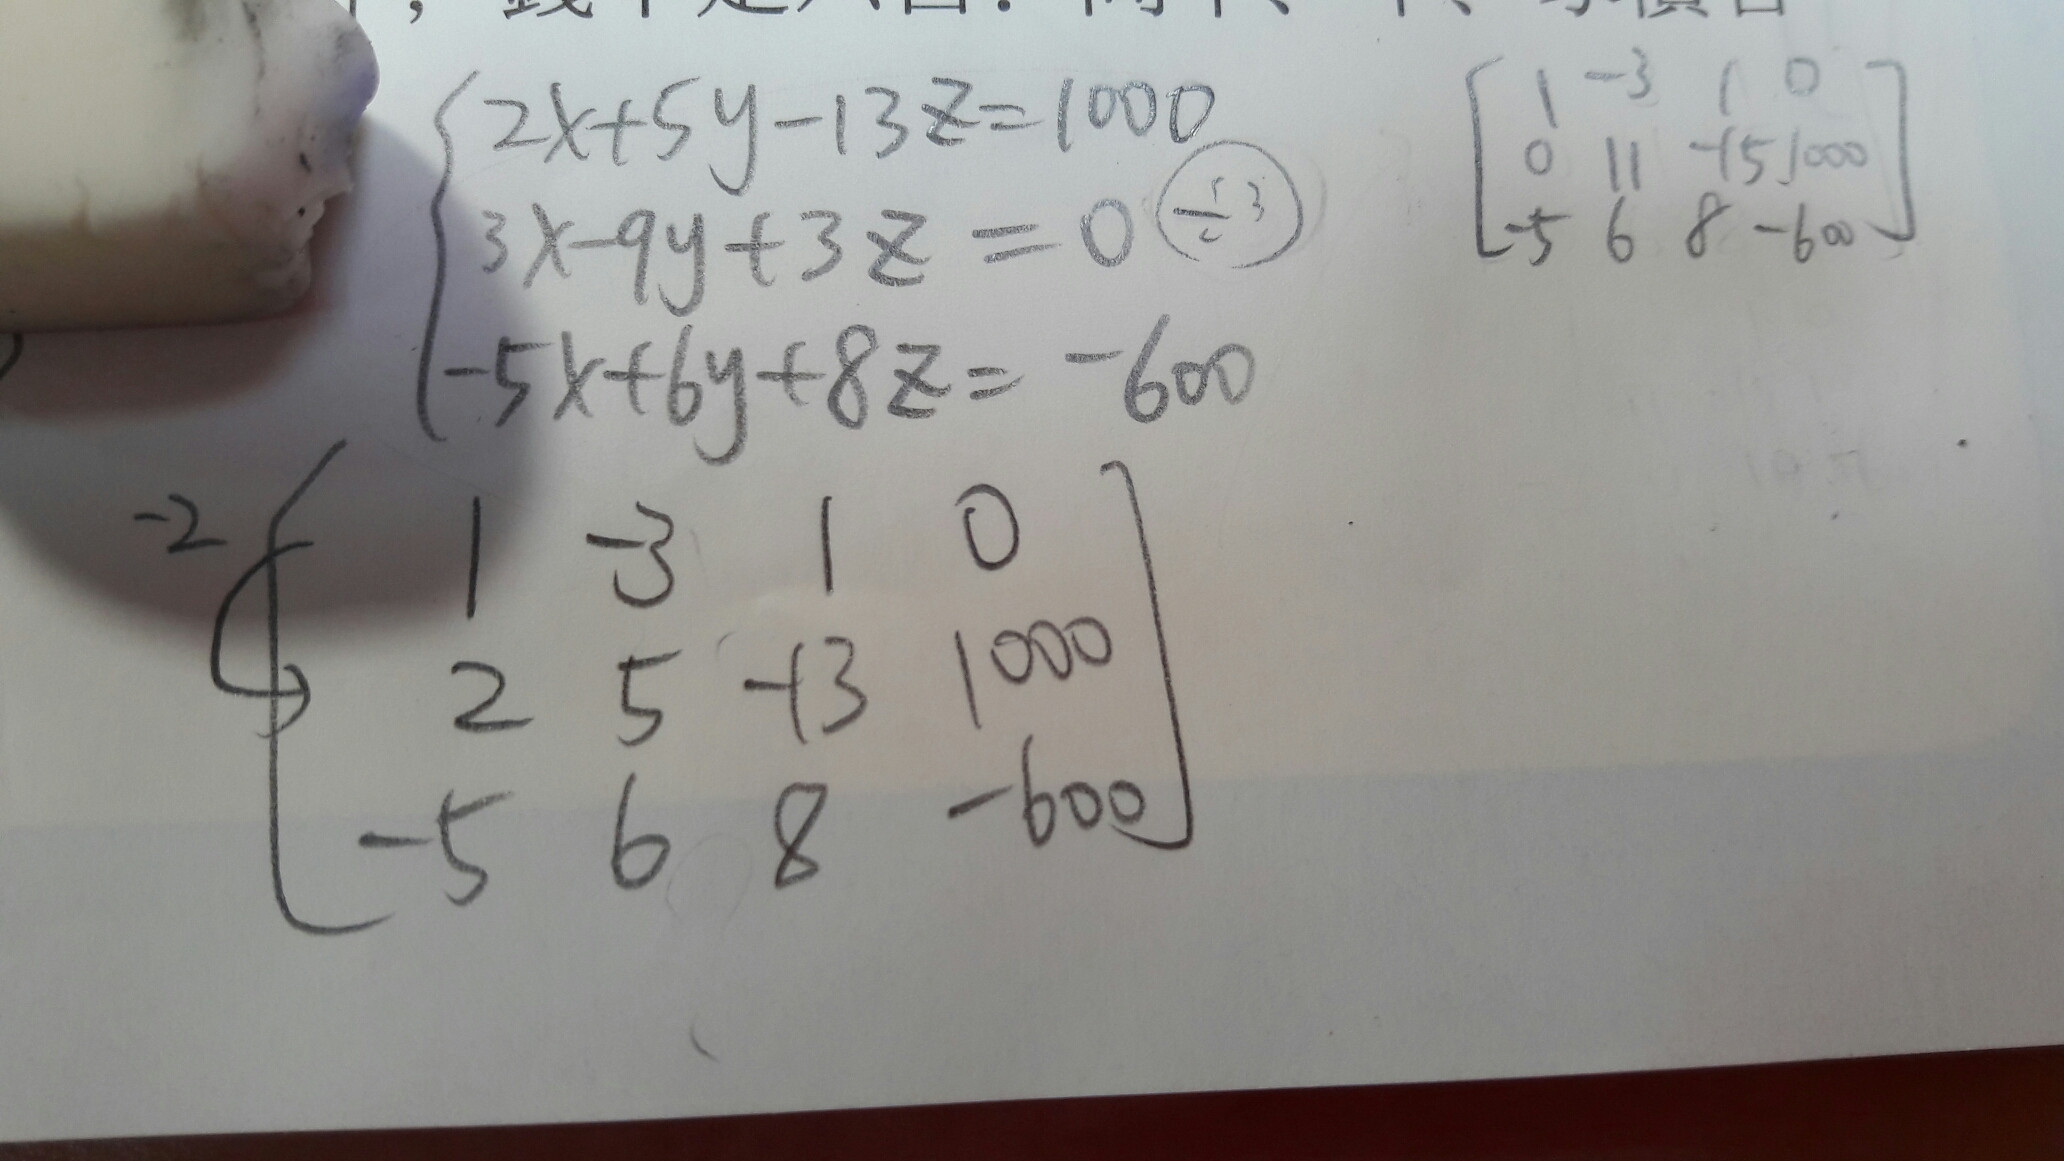 2x+5y-13z=1000
3x-9y+3z=0 ÷3
-5x+6y+8z=-600
1 -3 1 0
0 11 -15 1000
-5 6 8 -600
-2
1 -3 1 0
2 5 -13 1000
-5 6 8 -600